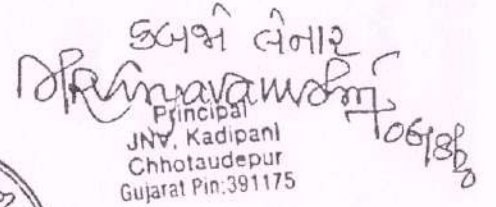 કબજો લેનાર
Principal
JNV, Kadipani
Chhotaudepur
Gujarat Pin:391175